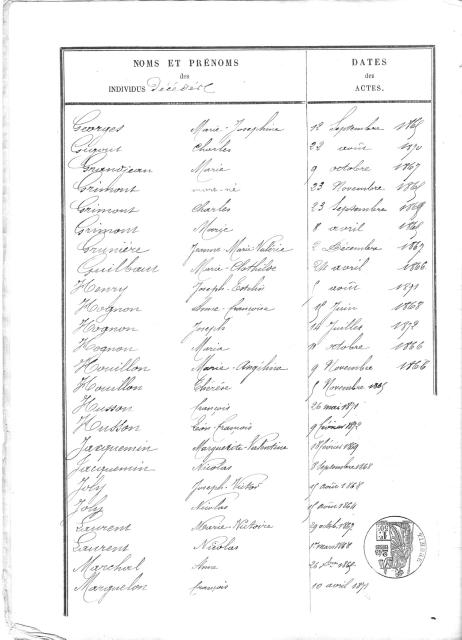 NOMS ET PRÉNOMS
des
INDIVIDUS Décédés
DATES
des
ACTES.
Georges Marie-Josephine 12 Septembre
Charles 22 août 1870
Grandjean Marie 9 octobre 1867
Grimont mort-né 23 Novembre
Grimont Charles 23 Septembre
Grimont Marie 8 avril
Grunière Jeanne-Marie-Valérie 2 Décembre 1867
Guilbaut Marie-Clothilde 24 avril 1866
Henry Joseph août 1871
Hognon Anne-françoise Juin 1868
Hognon Joseph 14 Juillet 1872
Hognon Maria octobre 1866
Houillon Marie 9 Novembre 1866
Houillon Thérèse Novembre
Husson françois 26 mai 1871
Husson Léon françois 9 février 1872
Jacquemin Marguerite-Valentine 18 février 1869
Jacquemin Nicolas 8 Septembre 1868
Joly Joseph-Victor août 1868
Joly Nicolas août 1864
Laurent Marie-Victoire 29 octobre
Laurent Nicolas 17 mars
Marchal Anne 26
Marguelon françois 10 avril 1871